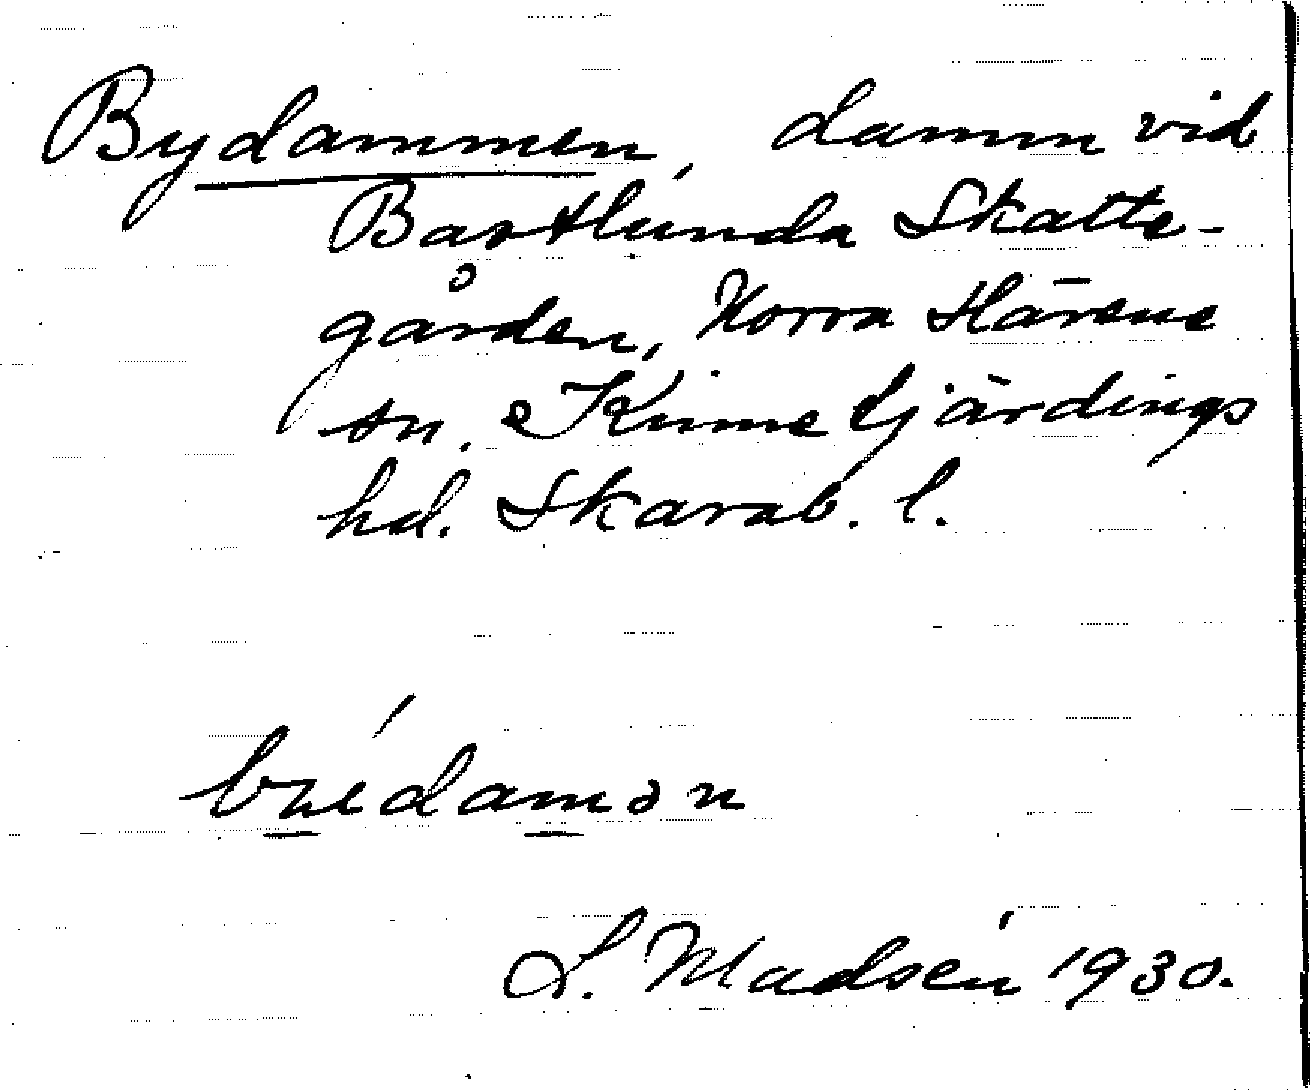 Bydammen, damm vid
Bastlunda Skatte-
gården, Norra Härene
sn, Kinnefjärdings
hd. Skarab. l.
L. Madsén 1930.